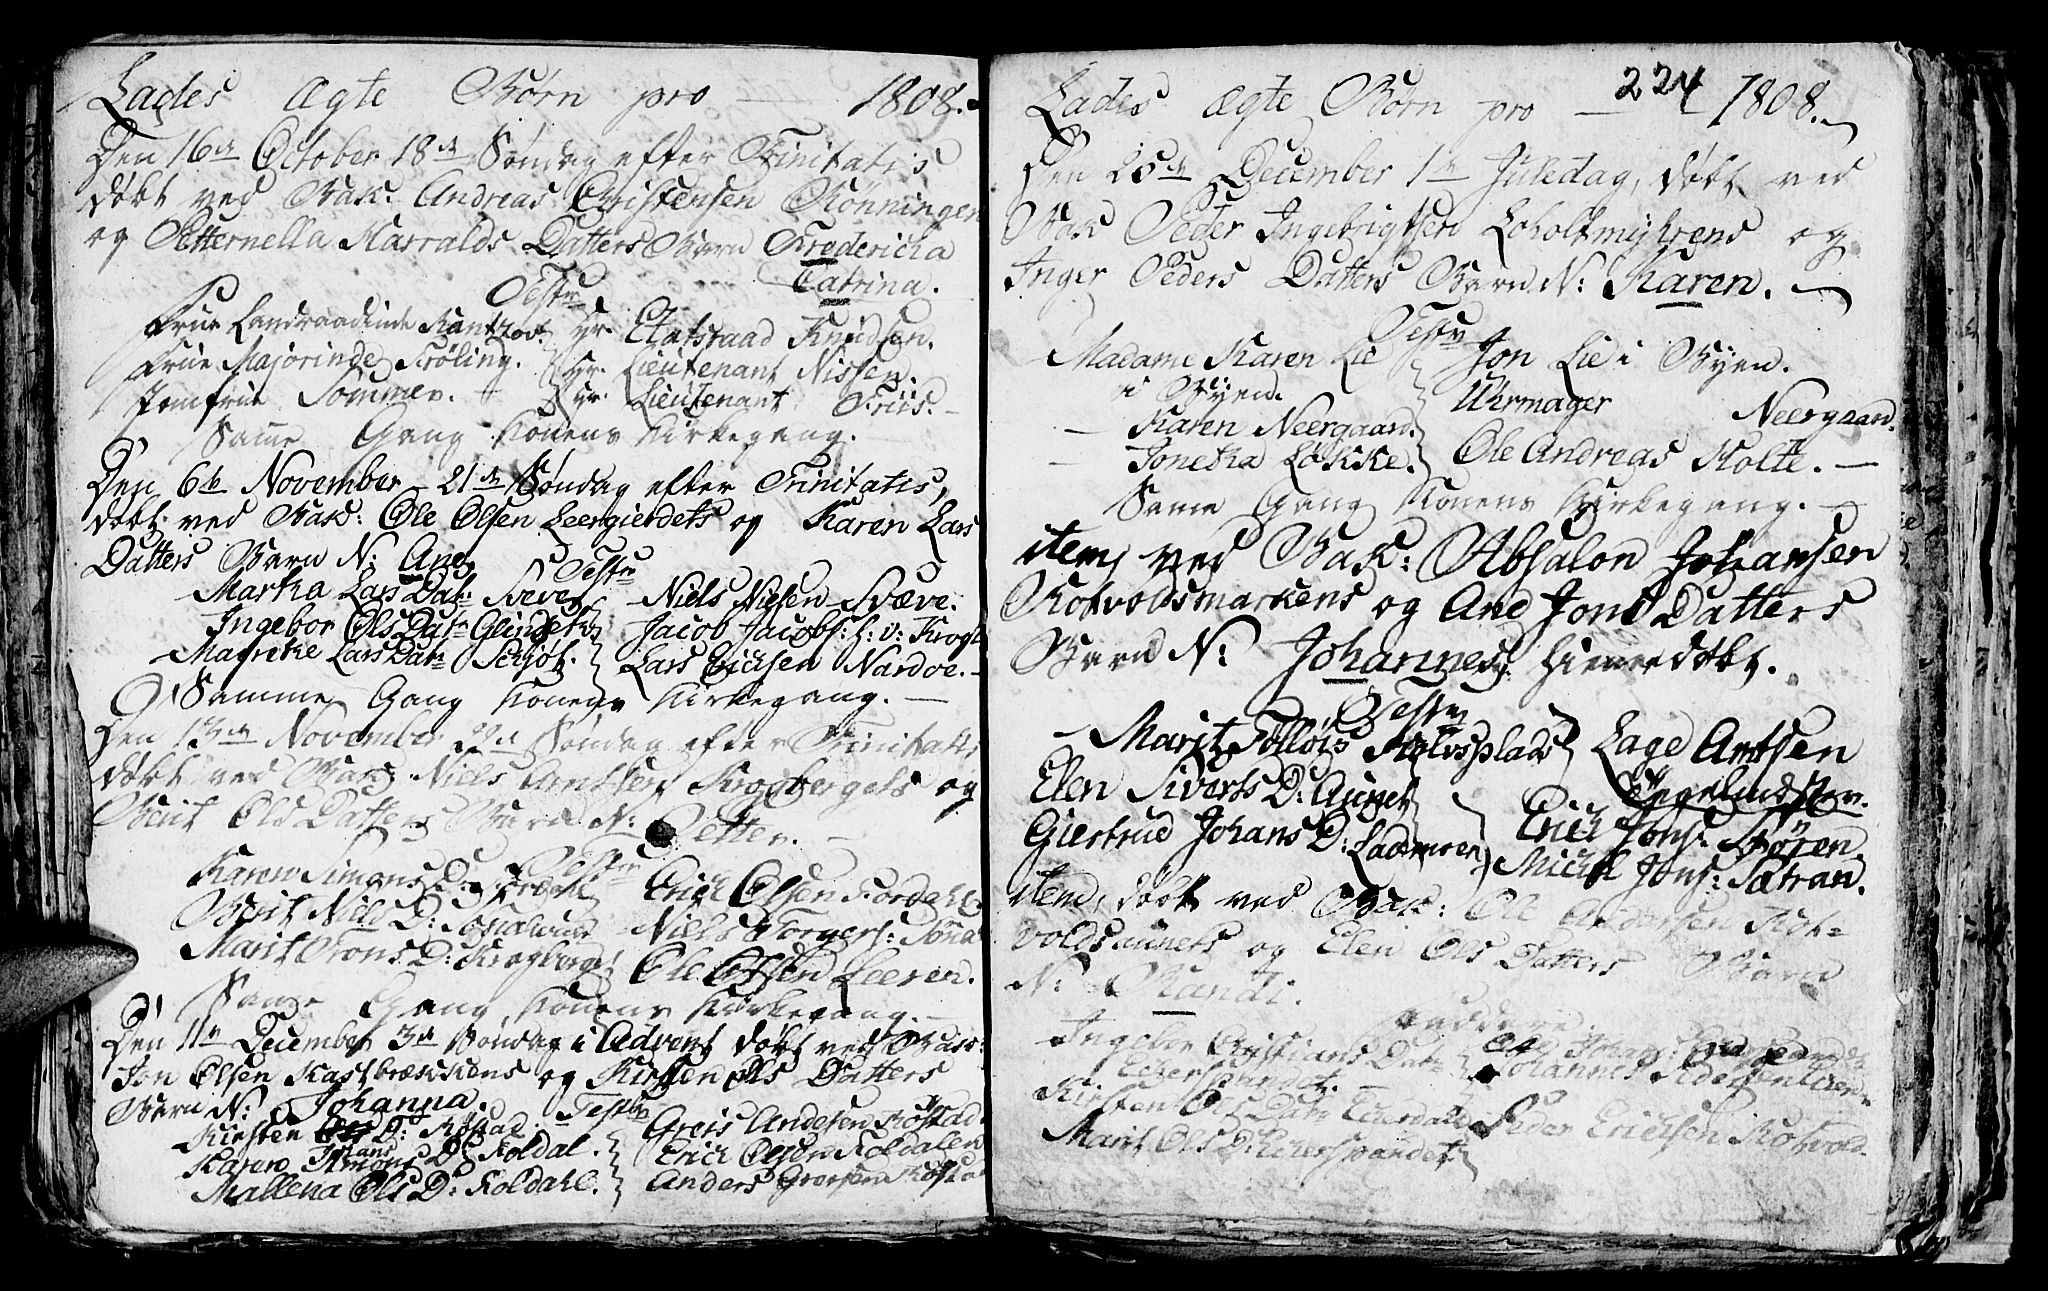 Lades ægte Børn pro — 1808.
Den 16de October 18de Søndag efter Trinitatis
døbt ved Bak: Andreas Christensen Rønningen
og Petternella Harralds Datters Barn Fredericha
Catrina.
Test
Frue Landraadinde Rantzov. Hr. Etatsraad Knudsen.
Frue Majorinde Frøling. Hr. Lieutenant Nissen.
Jomfrue Sommer. Hr. Lieutenant Friis.
Samme Gang Konens Kirkegang.
Den 6te November 21de Søndag efter Trinitatis,
døbt ved Bak: Ole Olsen Leergierdets og Karen Lars
Datters Barn N: Ane,
Test
Martha Lars Dat: Svever Niels Nielsen Svæve.
Ingebor Ols Datr Jacob Jacobs: h: v: Krogh
Marethe Lars Datr Schjøt. Lars Erichsen Nardoe.
Samme Gang Konens Kirkegang.
Den 13de November 22de Søndag efter Trinitatis,
døbt ved Bak: Niels Arntsen Krogbergets og
Berit Ols Datters Barn N: Petter.
Test
Karen Simons D: Erich Olsen Fordahl.
Berit Niels D: Niels Torgers:
Marit Trons D: Krogberget Ole Olsen Leeren.
Samme Gang Konens Kirkegang.
Den 11te December 3de Søndag i Advent døbt ved Bak:
Jon Olsen Kastbrækkens og Kirsten Ols Datters
Barn N: Johanna.
Test
Kirsten D: Røstad. Greis Andersen Røstad
Karen Simons D: Koldal. Erich Olsen Koldalen
Mallena Ols D: Koldahl. Anders Grersen Røstad
224
Lades ægte Børn pro — 1808.
Den 25de December 1te Juledag, døbt ved
Bak Peder Ingebrigtsen Loholtmyhrens og
Inger Peders Datters Barn N: Karen.
Test
Madame Karen Lie Jon Lie i Byen.
i Byen. Uhrmager Neergaard.
Karen Neergaard.
Jonetha Løkke. Ole Andreas Holte.
Same Gang Konens Kirkegang.
item, ved Bak: Absalon Johansen
Rotvoldsmarkens og Ane Jons Datters
Barn N: Johannes, hiemmedøbt.
Test
Marit Tolløis Lage Arntsen
Elen Siverts D: Aunet
Giertrud Johans D: Lademoen Erich Jons: Støren.
Michel Jons: Sætran.
item, døbt ved Bak: Ole Andersen Rot=
voldsaunets og Elen Ols Datters Barn
N: Randi.
Faddere:
Ingebor Christians Datr
Ekerspandet.
Kirsten Ols Datr
Marit Ols D: Ekerspandet Peder Erichsen Rotvold.